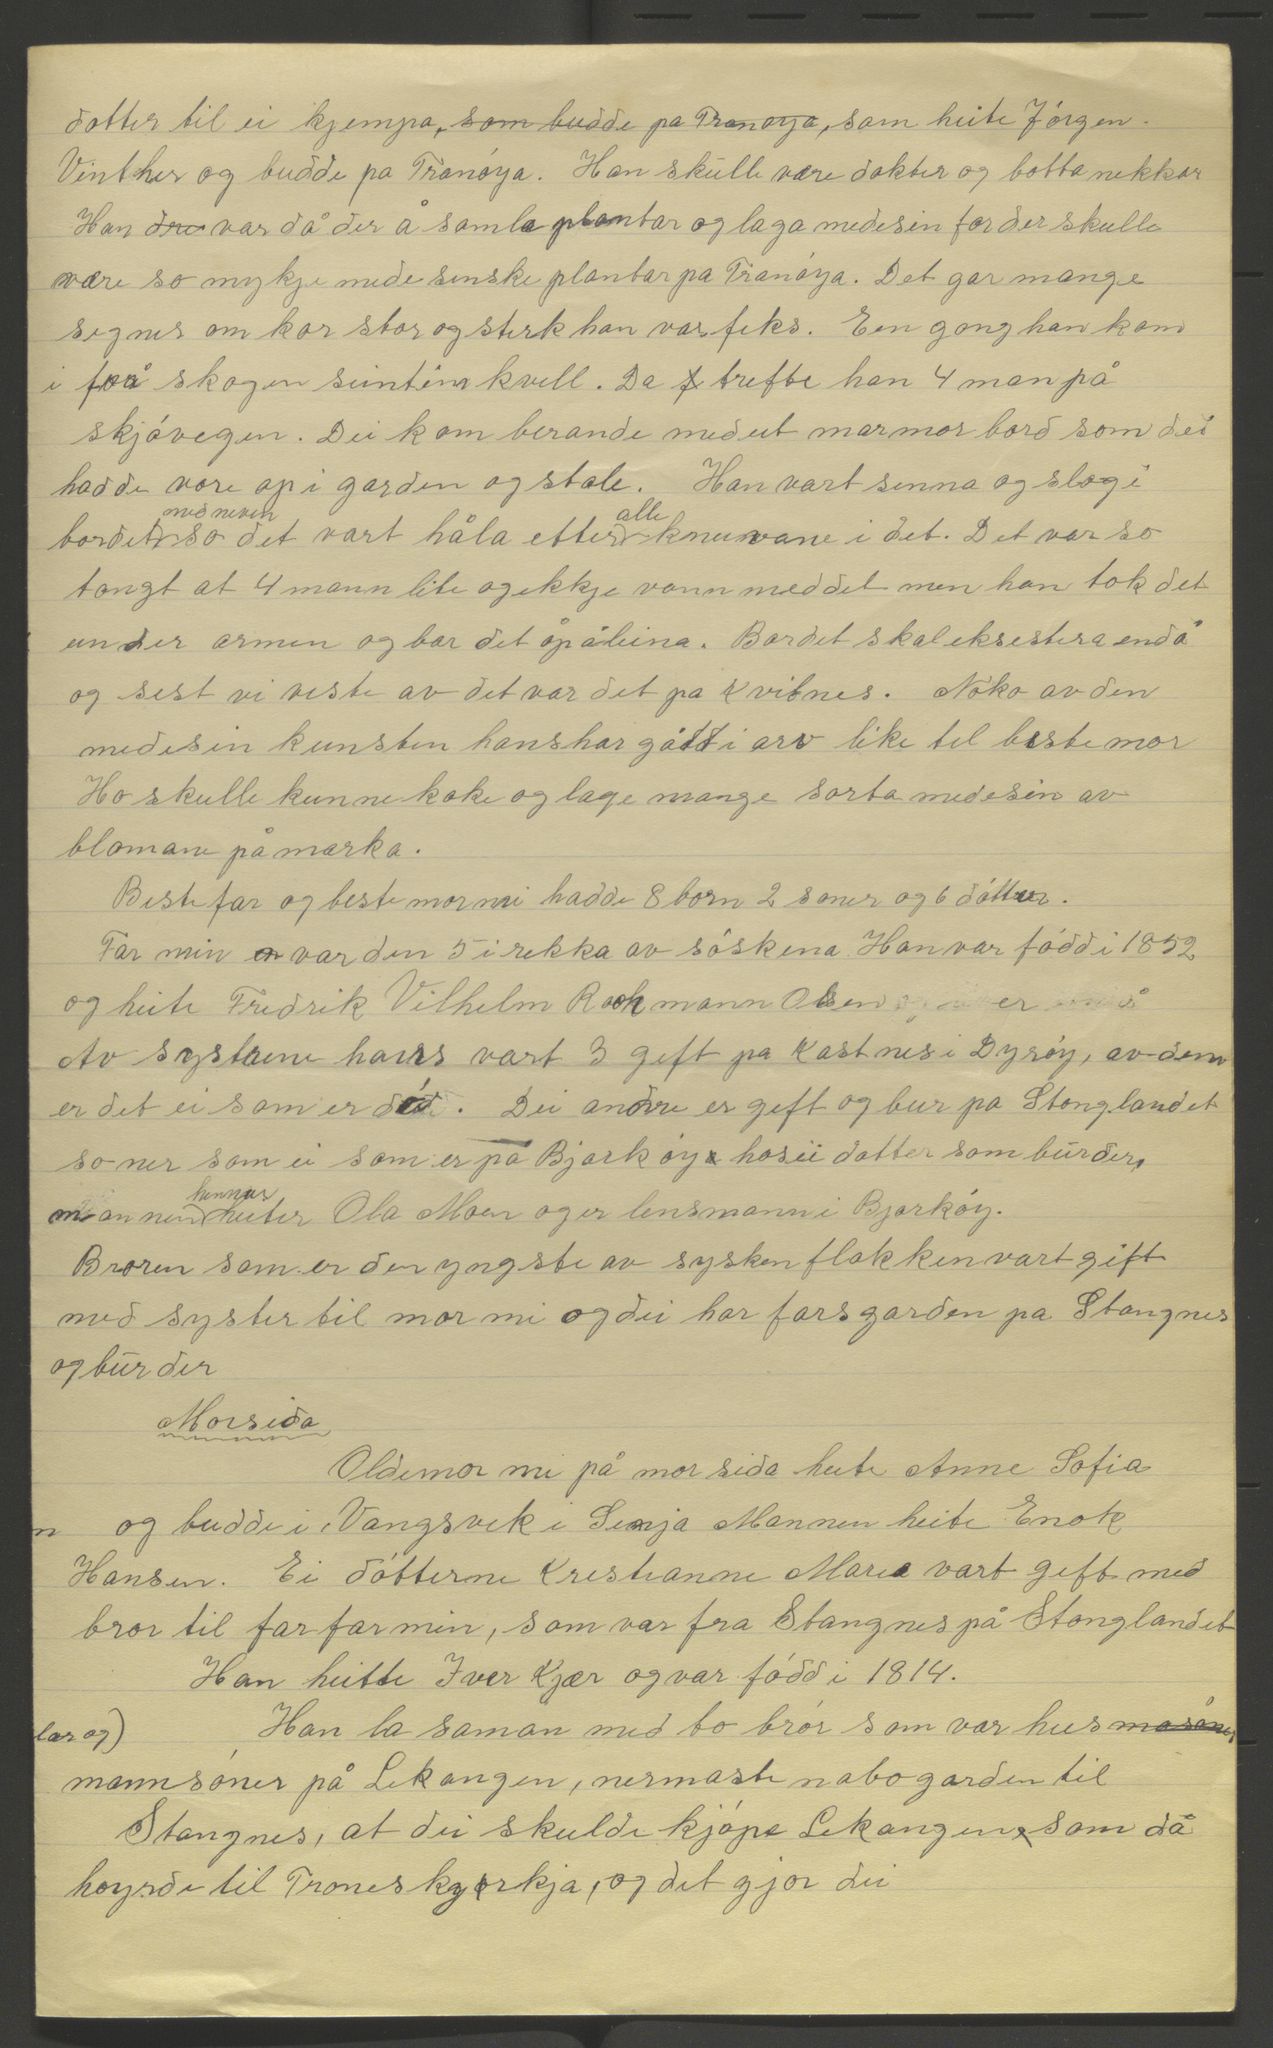 dotter til ei kjempa, som budde pa Tranøya, som heite Jórgen.
Vinther og budde pa Tranóya. Han skulle være dokter og bottanekkar
Han dre var då der å samla plantar og laga medesin for der skulle
være so mykje medesinske plantar pa Tranóya. Det gar mange
segner om kor stor og sterk han var feks. Een gong han kom
i frå skogen seint ein kvell. Da trefte han 4 man på
skjóvegen. Dei kom berande med eit marmor bord som dei
hadde vore op i garden og stole. Han vart senna og slog i
bordet med neven so det vart håla etter alle knuvane i det. Det var so
tongt at 4 mann lite og ekkje vann med det men han tok det
under armen og bar det op åleina. Bordet skal eksestera endå
og sest vi veste av det var det pa Kvitnes. Nóko av den
medesin kunsten hans har gått i arv like til bestemor
Ho skulle kunne koke og lage mange sorta medesin av
blomane på marka.
Bestefar og bestemor mi hadde 8 born 2 soner og 6 dótter.
Far min var den 5 i rekka av sóskena. Han var fódd i 1852
og heite Fredrik Vilhelm Rockmann Olsen er
Av systrene hans vart 3 geft pa Kastnes i Dyróy, av dem
er det ei som er dód. Dei andre er geft og bur pa Stonglandet
so ner som ei som er på Bjarkóy hos ei dotter som bur der,
mannen hennar heiter Ola Moen og er lensmann i Bjarkóy.
Broren som er den yngste av syskenflokken vart gift
med syster til mor mi og dei har farsgarden pa Stangnes
og bur der
Morsida
Oldemor mi på morsida heite Anne Sofia
n og budde i Vangsvek i Senja Mannen heite Enok
Hansen. Ei dótterne Krestianne Maria vart geft med
bror til farfar min, som var fra Stangnes på Stonglandet
Han heitte Iver Kjær og var fódd i 1814.
lar og) Han la saman med to brór som var husmasóner
mannsóner på Lekangen, nermaste nabogarden til
Stangnes, at dei skulde kjópe Lekangen som då
hoyrde til Troneskyrkja, og det gjor dei